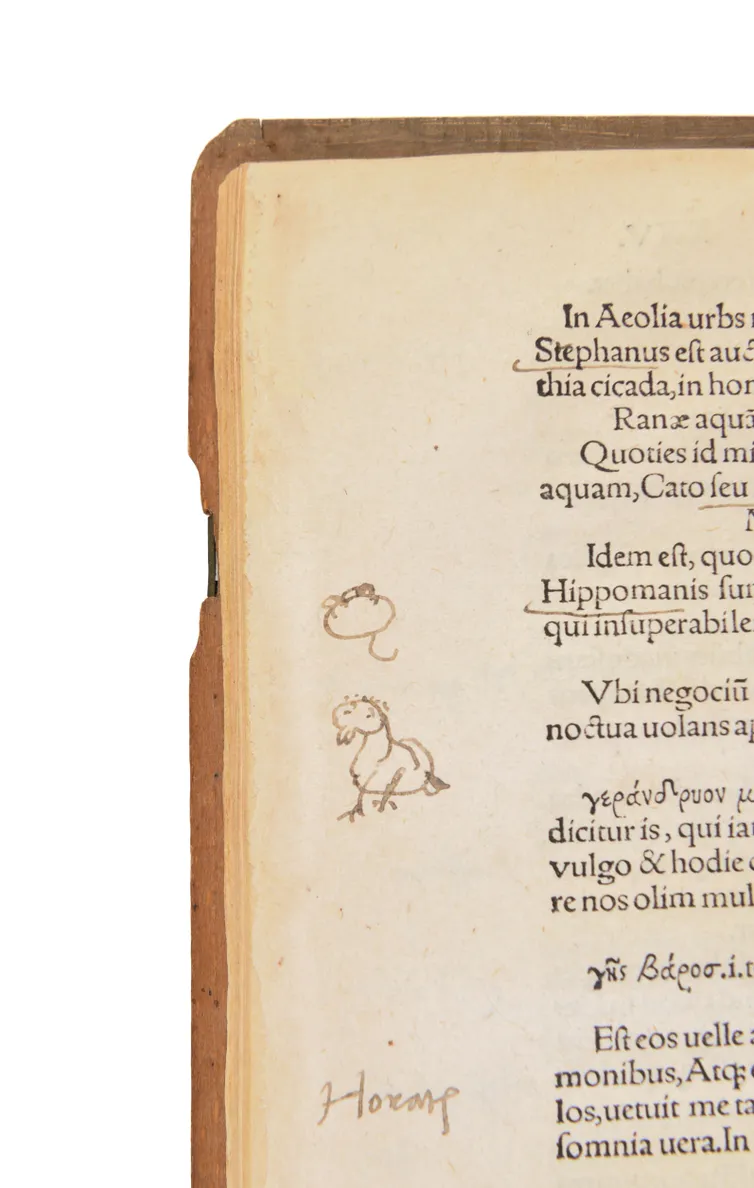 In Aeolia urbs
Stephanus eſt auc
thia cicada, in hor
Ranæ aquā
Quoties id mi
aquam, Cato ſeu
Idem eſt, quo
Hippomanis fur
qui inſuperabile
Vbi negociū
noctua uolans ap
γεράνδρυον μ
dicitur is, qui ia
vulgo & hodie
re nos olim mul
γῆς βάροσ.i.t
Eſt eos uelle
monibus, Atq;
los, uetuit me ta
ſomnia uera. In